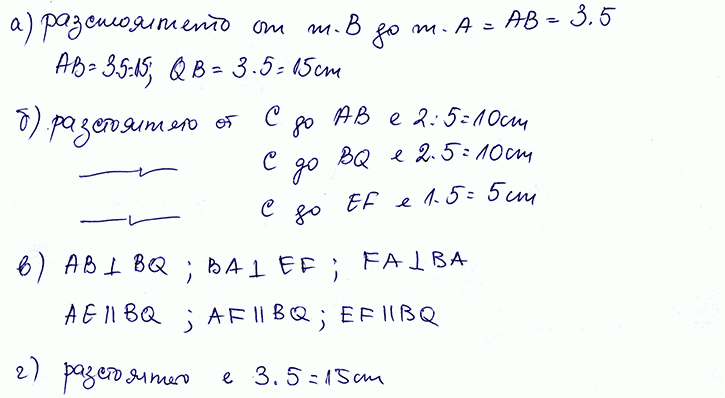 а) разстоянието от т. В до т. А = АВ = 3.5
АВ = 3.5=15; QB = 3.5 = 15cm
б) разстоянието от С до АВ е 2.5=10cm
С до BQ е 2.5=10cm
С до EF е 1.5= 5cm
в) АВ ⊥ BQ ; BA ⊥ EF ; FA ⊥ BA
AE || BQ ; AF || BQ ; EF || BQ
г) разстоянието е 3.5=15cm